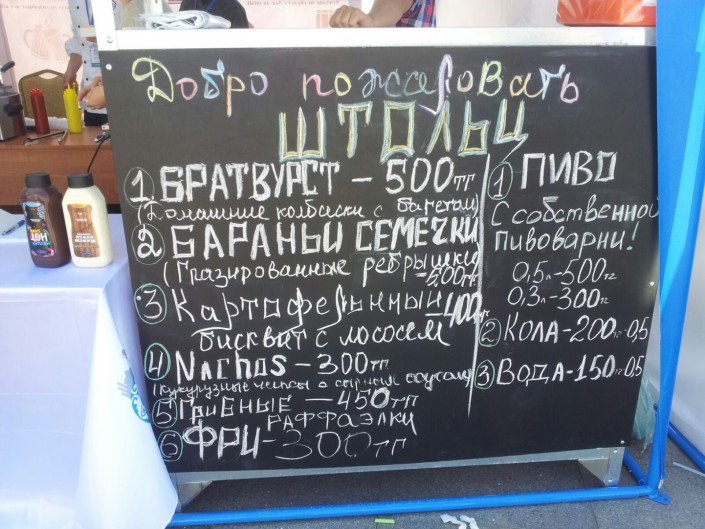 Добро пожаловать
ШТОЛЬЦ
1 БРАТВУРСТ - 500 тг
(Домашние колбаски с багетом)
2 БАРАНЬИ СЕМЕЧКИ
(Глазированные ребрышки)
- 500 тг
3 Картофельный - 400 тг
бисквит с лососем
4 Nachos - 300 тг
(кукурузные чипсы с сырным соусом)
5 Грибные - 450 тп
РАФФАЭЛКИ
6 ФРИ - 300 тп
1 ПИВО
С собственной
Пивоварни!
0,5л - 500 тг
0,3л - 300 тг
2 КОЛА - 200 тг - 0,5
3 ВОДА - 150 тг 0,5